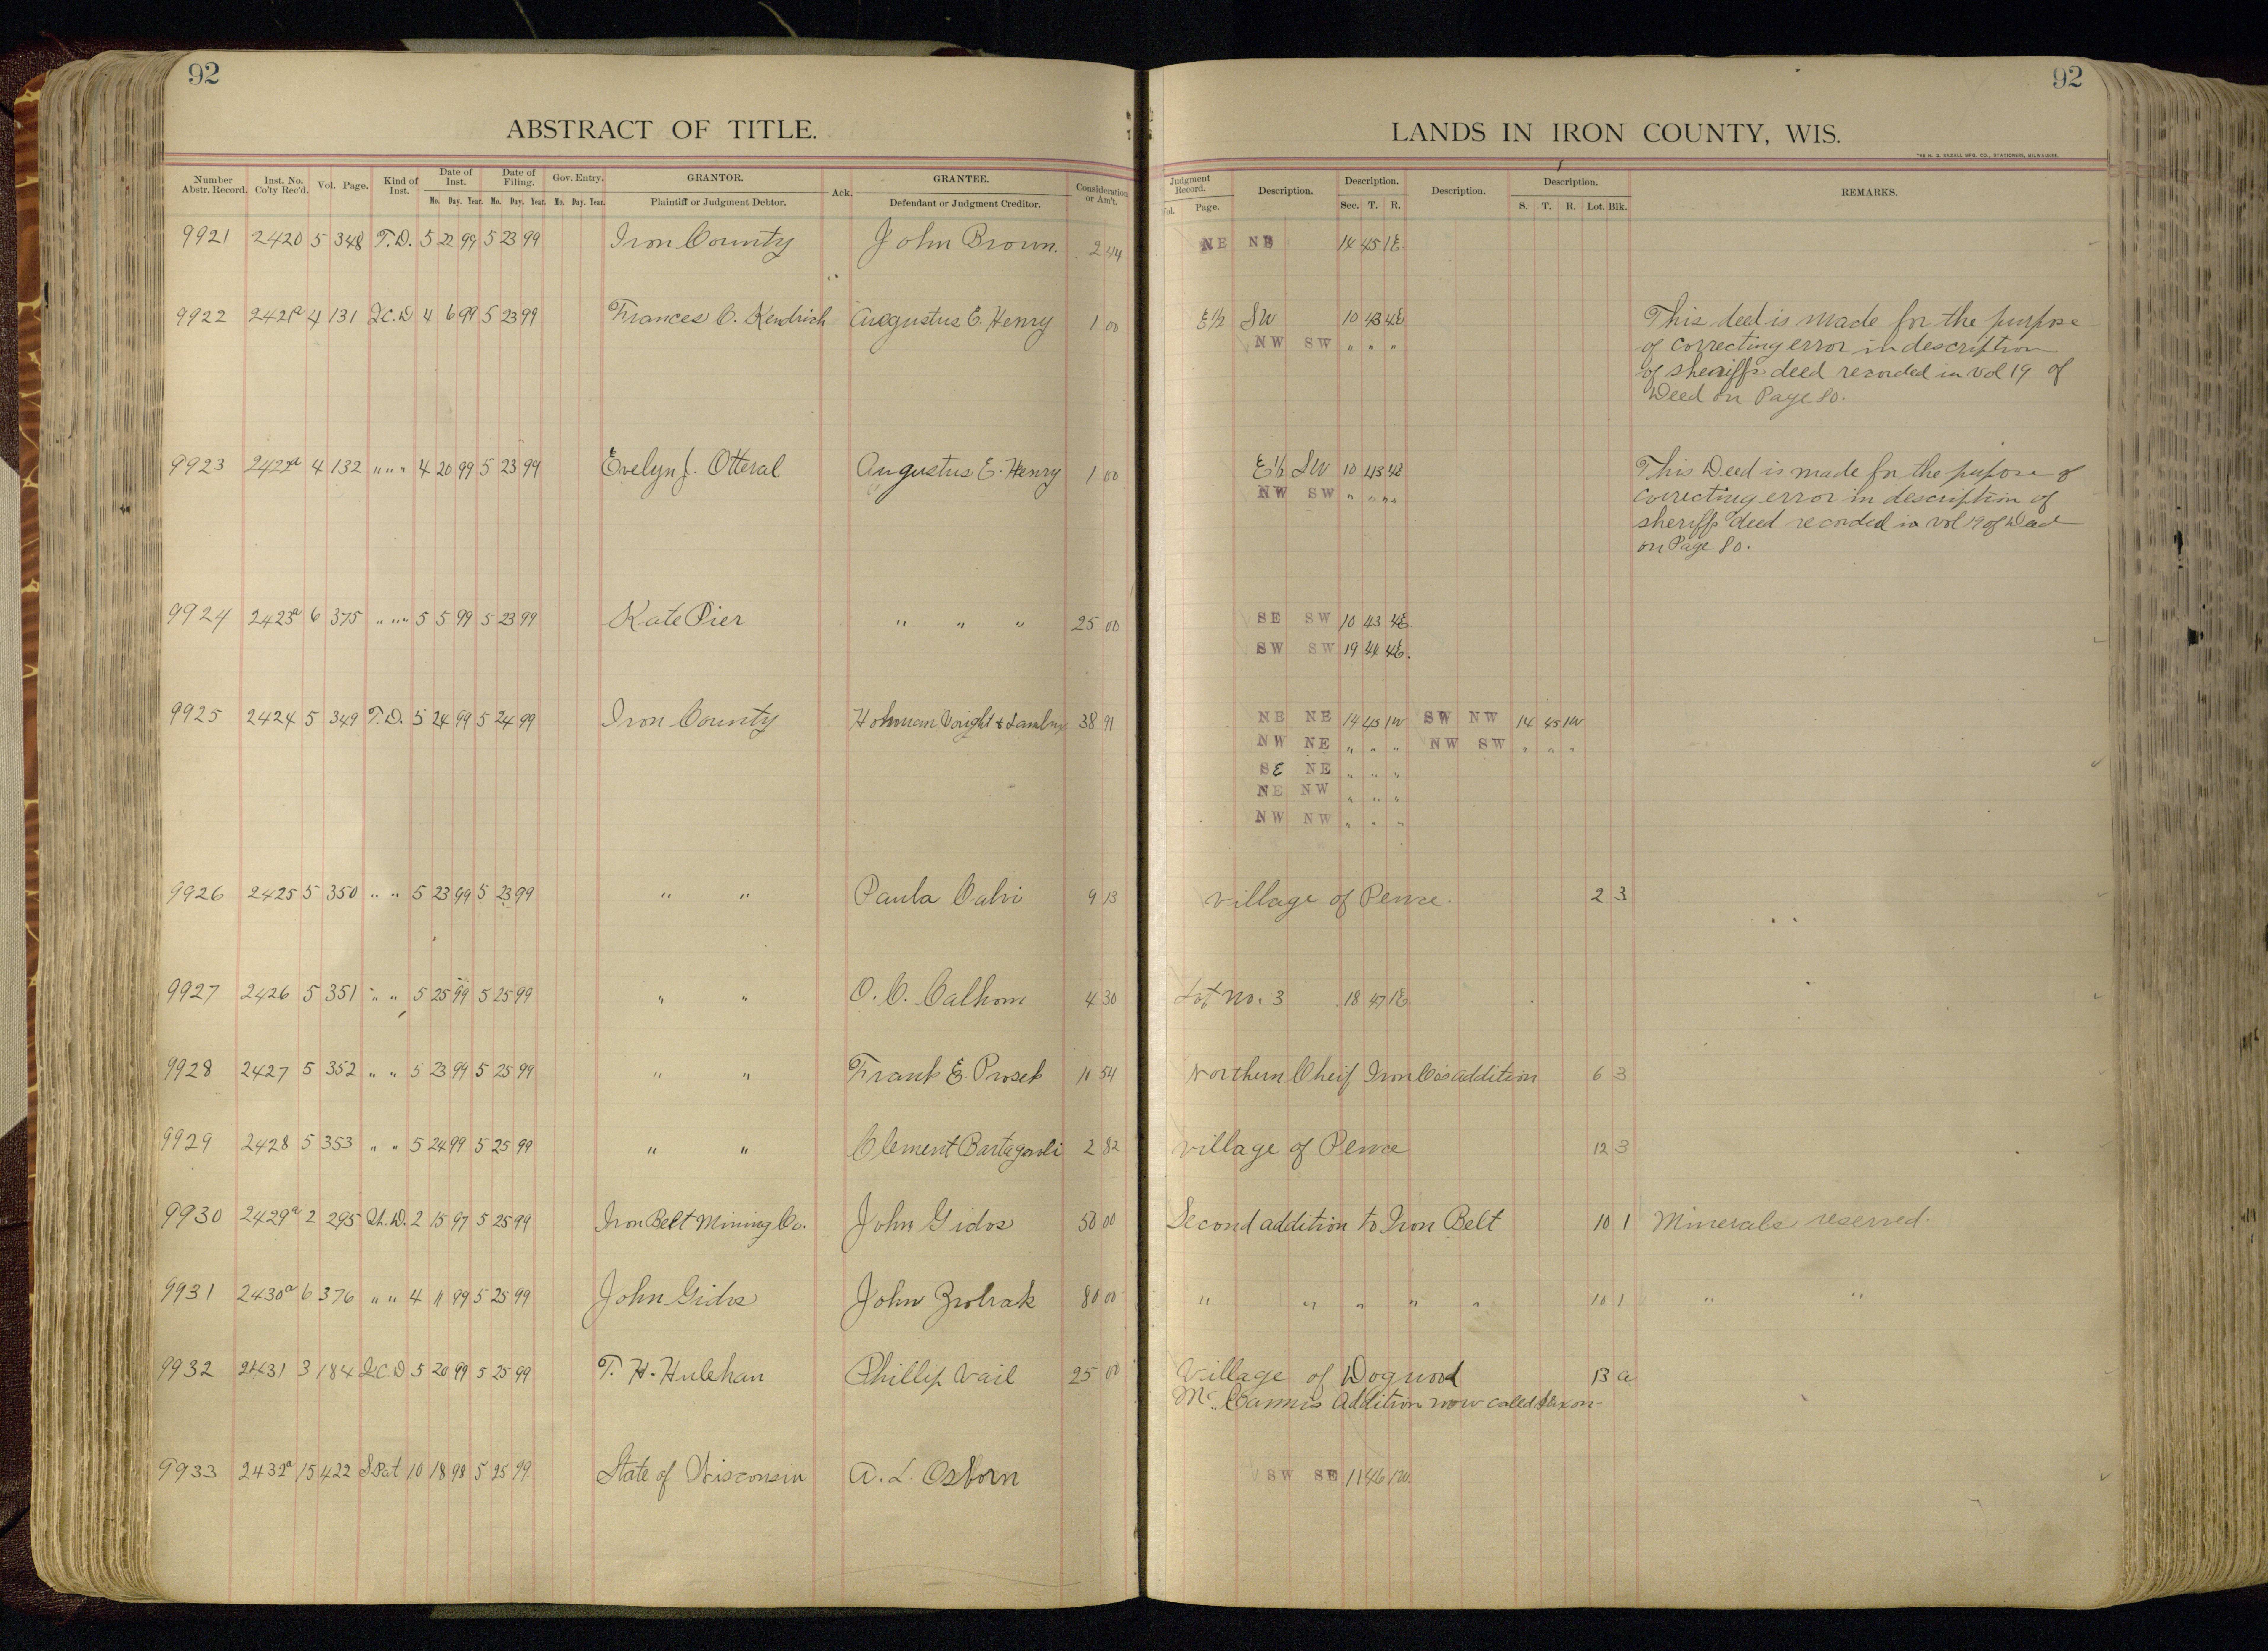 92
ABSTRACT OF TITLE.
Number Abstr. Record. Inst. No. Co'ty Rec'd. Vol. Page. Kind of Inst. Date of Inst. Mo. Day. Year. Date of Filing. Mo. Day. Year. Gov. Entry. Mo. Day. Year. GRANTOR. Plaintiff or Judgment Debtor. Ack. GRANTEE. Defendant or Judgment Creditor. Consideration or Am't.
9921 2420 5 348 T.D. 5 22 99 5 23 99 Iron County John Brown. 2 44
9922 2421a 4 131 Q.C.D 4 6 99 5 23 99 Frances C. Kendrich Augustus E. Henry 1 00
9923 2422a 4 132 " " " 4 20 99 5 23 99 Evelyn J. Otteral Augustus E. Henry 1 00
9924 2423a 6 375 " " " 5 5 99 5 23 99 Kate Pier " " " 25 00
9925 2424 5 349 T.D. 5 24 99 5 24 99 Iron County 38 91
9926 2425 5 350 " " 5 23 99 5 23 99 " " Paula Calvi 9 13
9927 2426 5 351 " " 5 25 99 5 25 99 " " O. C. Calhom 4 30
9928 2427 5 352 " " 5 23 99 5 25 99 " " Frank E. Prosek 11 54
9929 2428 5 353 " " 5 24 99 5 25 99 " " Clement 2 82
9930 2429a 2 295 W.D. 2 15 97 5 25 99 Iron Belt Mining Co. John Gidos 50 00
9931 2430a 6 376 " " 4 11 99 5 25 99 John Gidos John 80 00
9932 2431 3 184 Q.C.D 5 20 99 5 25 99 T. H. Hulehan Phillip Vail 25 00
9933 2432a 15 422 S.Pat 10 18 98 5 25 99 State of Wisconsin A. L. Osborn
92
LANDS IN IRON COUNTY, WIS.
THE H. G. RAZALL MFG. CO., STATIONERS, MILWAUKEE.
Judgment Record. Vol. Page. Description. Description. Sec. T. R. Description. Description. S. T. R. Lot. Blk. REMARKS.
NE NE 14 45 1E
E½ SW 10 43 4E This deed is made for the purpose
NW SW " " " of correcting error in description
of sheriffs deed recorded in Vol 19 of
Deed on Page 80.
E½ SW 10 43 4E This Deed is made for the pupose of
NW SW " " " correcting error in description of
sheriffs deed recorded in vol 19 of Deed
on Page 80.
SE SW 10 43 4E.
SW SW 19 44 4E.
NE NE 14 45 1W SW NW 14 45 1W
NW NE " " " NW SW " " "
SE NE " " "
NE NW " " "
NW NW " " "
Village of Pence. 2 3
Lot No. 3 18 47 1E
Northern Cheif Iron Co's addition 6 3
Village of Pence 12 3
Second addition to Iron Belt 10 1 Minerals reserved.
" " " " " 10 1 " "
Village of Dogwood 13 a
Addition now called Saxon
SW SE 11 46 1W